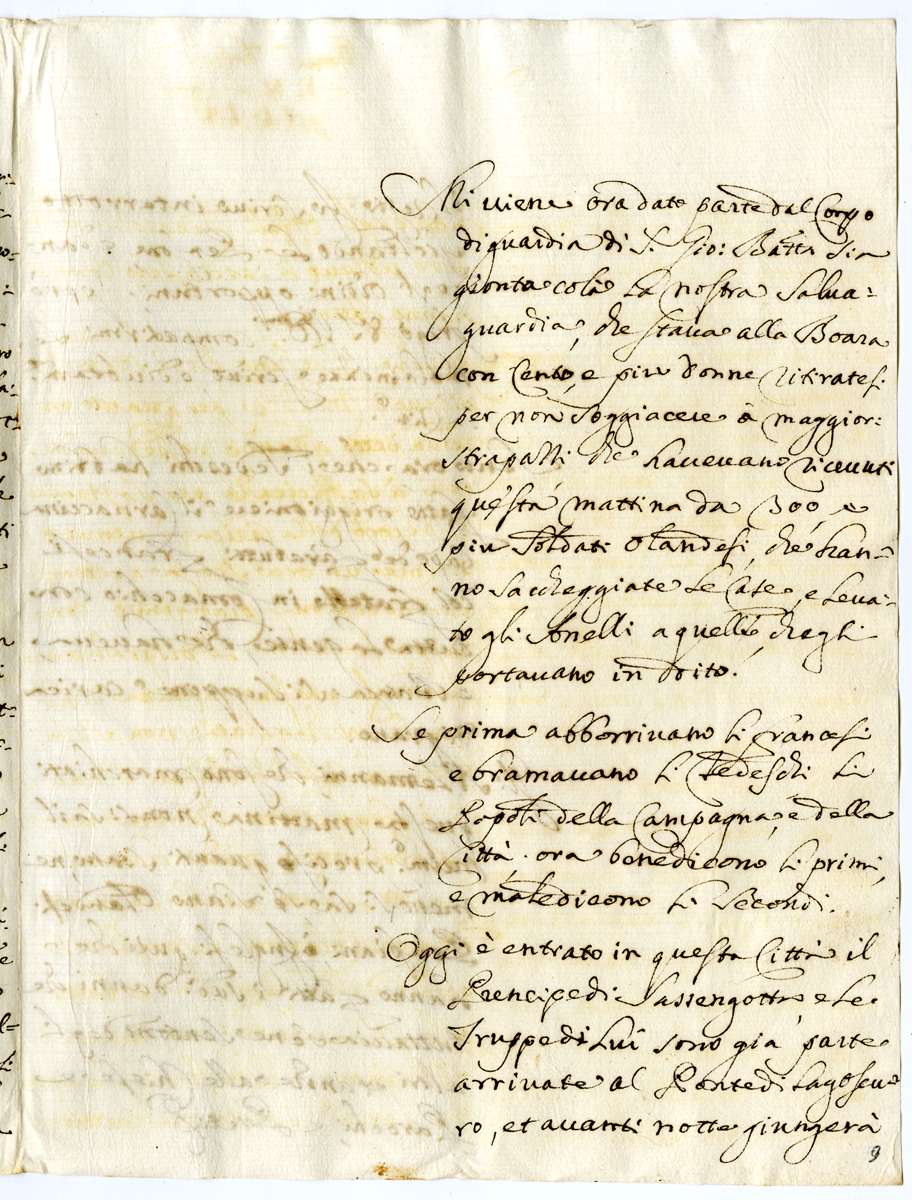 Mi uiene ora dato parte dal Corpo
di guardia di S. Gio: Batta sia
gionta colà la nostra Salua=
guardia, che staua alla Boara
con Cento, e piu donne ritiratesi
per non soggiacere à maggior:
strapatti che haueuano riceuuti
questa mattina da 300, e
piu Soldati Olandesi, che han=
no saccheggiate le Case, e leua=
to gli Anelli a quelle, che gli
portauano in doito.
Se prima abborriuano li Francesi
e bramauano li Tedeschi li
Popoli della Campagna, e della
Città. ora benedicono li primi,
e maledicono li secondi.
Oggi è entrato in questa Città il
Prencipe di Sassengotta, e le
Truppe di Lui sono già parte
arriuate al Ponte di Lagoscu=
ro, et auanti notte giungerà
9